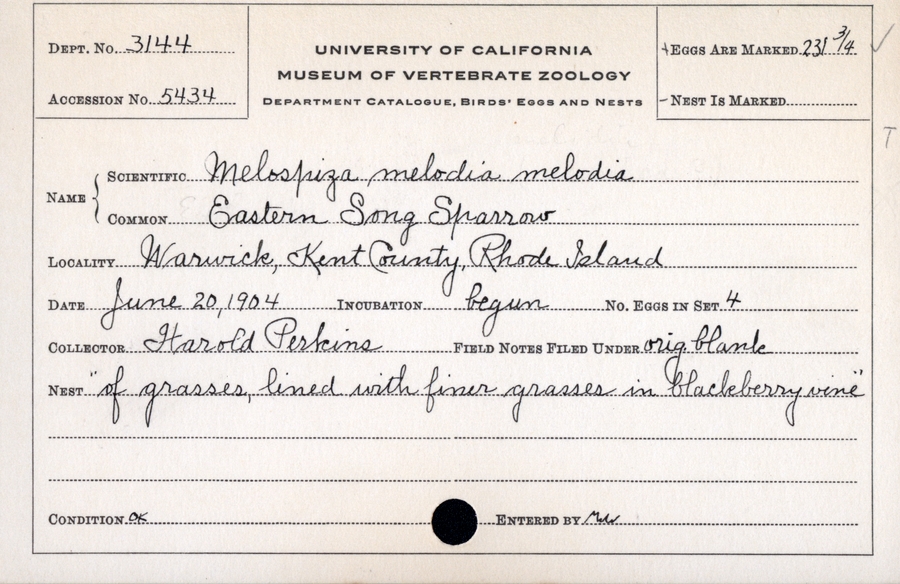 DEPT. NO. 3144
ACCESSION NO. 5434
UNIVERSITY OF CALIFORNIA
MUSEUM OF VERTEBRATE ZOOLOGY
DEPARTMENT CATALOGUE, BIRDS' EGGS AND NESTS
EGGS ARE MARKED 231 3/4 ✓
NEST IS MARKED
T
NAME { SCIENTIFIC Melospiza melodia melodia
COMMON Eastern Song Sparrow
LOCALITY Warwick, Kent County, Rhode Island
DATE June 20, 1904 INCUBATION begun NO. EGGS IN SET 4
COLLECTOR Harold Perkins FIELD NOTES FILED UNDER orig. blank
NEST "of grasses, lined with finer grasses in blackberry vine"
CONDITION OK ENTERED BY